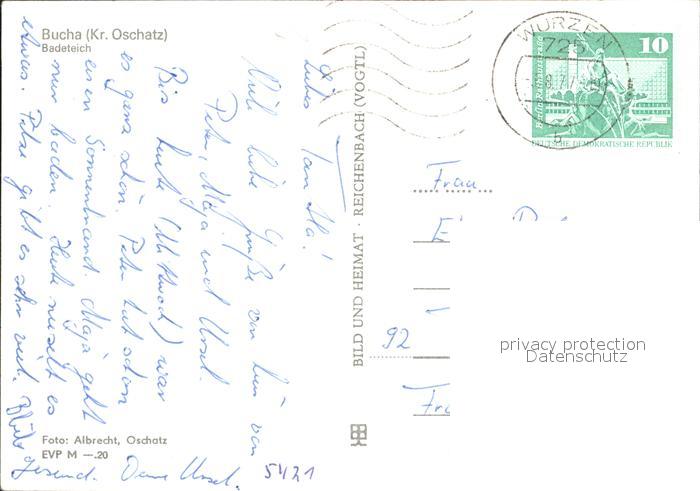 Bucha (Kr. Oschatz)
Badeteich
Liebe Tante Ella!
Viele liebe Grüße von hier von
Peter, Maja und Ursel.
Bis heute (Mittwoch) war
es ganz schön. Peter hat schon
einen Sonnenbrand. Maja geht
nur baden. Heute nieselt es
etwas. Pilze gibt es sehr viel. Bleib
gesund. Deine Ursel.
5421
Foto: Albrecht, Oschatz
EVP M —.20
BILD UND HEIMAT · REICHENBACH (VOGTL)
WURZEN
725
10
Berlin, Rathausstraße
DEUTSCHE DEMOKRATISCHE REPUBLIK
Frau
92
privacy protection
Datenschutz